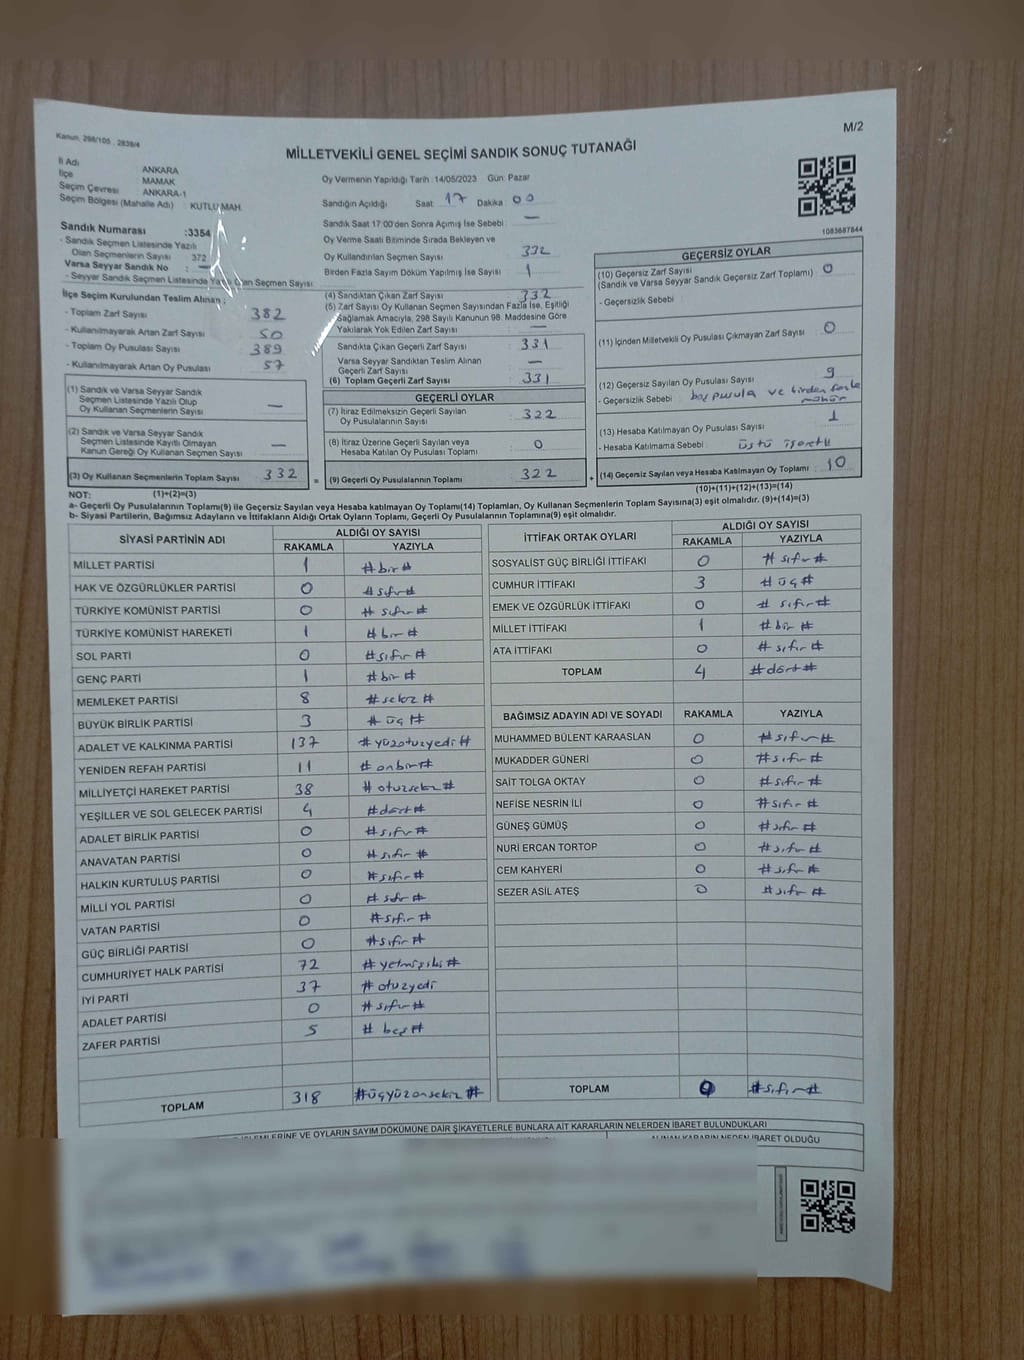 Kanun, 298/105 . 2839/4
M/2
MİLLETVEKİLİ GENEL SEÇİMİ SANDIK SONUÇ TUTANAĞI
İl Adı ANKARA
İlçe MAMAK
Seçim Çevresi ANKARA-1
Seçim Bölgesi (Mahalle Adı) : KUTLU MAH.
Oy Vermenin Yapıldığı Tarih :14/05/2023 Gün: Pazar
Sandığın Açıldığı Saat : 17 Dakika : 00
Sandık Saat 17:00'den Sonra Açımış İse Sebebi : —
Oy Verme Saati Bitiminde Sırada Bekleyen ve
Oy Kullandırılan Seçmen Sayısı : 332
Birden Fazla Sayım Döküm Yapılmış İse Sayısı : 1
1083687844
Sandık Numarası :3354
- Sandık Seçmen Listesinde Yazılı
Olan Seçmenlerin Sayısı 372
Varsa Seyyar Sandık No : —
- Seyyar Sandık Seçmen Listesinde Olan Seçmen Sayısı :
İlçe Seçim Kurulundan Teslim Alınan :
- Toplam Zarf Sayısı : 382
- Kullanılmayarak Artan Zarf Sayısı : 50
- Toplam Oy Pusulası Sayısı : 389
- Kullanılmayarak Artan Oy Pusulası : 57
(1) Sandık ve Varsa Seyyar Sandık
Seçmen Listesinde Yazılı Olup
Oy Kullanan Seçmenlerin Sayısı : —
(2) Sandık ve Varsa Seyyar Sandık
Seçmen Listesinde Kayıtlı Olmayan
Kanun Gereği Oy Kullanan Seçmen Sayısı : —
(3) Oy Kullanan Seçmenlerin Toplam Sayısı : 332
(4) Sandıktan Çıkan Zarf Sayısı : 332
(5) Zarf Sayısı Oy Kullanan Seçmen Sayısından Fazla İse, Eşitliği
Sağlamak Amacıyla, 298 Sayılı Kanunun 98. Maddesine Göre
Yakılarak Yok Edilen Zarf Sayısı : —
Sandıkta Çıkan Geçerli Zarf Sayısı : 331
Varsa Seyyar Sandıktan Teslim Alınan
Geçerli Zarf Sayısı : —
(6) Toplam Geçerli Zarf Sayısı : 331
GEÇERLİ OYLAR
(7) İtiraz Edilmeksizin Geçerli Sayılan
Oy Pusulasının Sayısı : 322
(8) İtiraz Üzerine Geçerli Sayılan veya
Hesaba Katılan Oy Pusulası Toplamı : 0
= (9) Geçerli Oy Pusulalarının Toplamı : 322
GEÇERSİZ OYLAR
(10) Geçersiz Zarf Sayısı : 0
(Sandık ve Varsa Seyyar Sandık Geçersiz Zarf Toplamı)
- Geçersizlik Sebebi
(11) İçinden Milletvekili Oy Pusulası Çıkmayan Zarf Sayısı : 0
(12) Geçersiz Sayılan Oy Pusulası Sayısı : 9
- Geçersizlik Sebebi : boş pusula ve birden fazla
mühür
(13) Hesaba Katılmayan Oy Pusulası Sayısı : 1
- Hesaba Katılmama Sebebi : üstü işaretli
+ (14) Geçersiz Sayılan veya Hesaba Katılmayan Oy Toplamı : 10
NOT: (1)+(2)=(3)
(10)+(11)+(12)+(13)=(14)
a- Geçerli Oy Pusulalarının Toplamı(9) ile Geçersiz Sayılan veya Hesaba katılmayan Oy Toplamı(14) Toplamları, Oy Kullanan Seçmenlerin Toplam Sayısına(3) eşit olmalıdır. (9)+(14)=(3)
b- Siyasi Partilerin, Bağımsız Adayların ve İttifakların Aldığı Ortak Oyların Toplamı, Geçerli Oy Pusulalarının Toplamına(9) eşit olmalıdır.
SİYASİ PARTİNİN ADI ALDIĞI OY SAYISI
RAKAMLA YAZIYLA
MİLLET PARTİSİ 1 #bir#
HAK VE ÖZGÜRLÜKLER PARTİSİ 0 #sıfır#
TÜRKİYE KOMÜNİST PARTİSİ 0 # sıfır#
TÜRKİYE KOMÜNİST HAREKETİ 1 #bir#
SOL PARTİ 0 #sıfır#
GENÇ PARTİ 1 #bir#
MEMLEKET PARTİSİ 8 #sekiz#
BÜYÜK BİRLİK PARTİSİ 3 # üç #
ADALET VE KALKINMA PARTİSİ 137 #yüzotuzyedi#
YENİDEN REFAH PARTİSİ 11 #onbir#
MİLLİYETÇİ HAREKET PARTİSİ 38 # otuzsekiz#
YEŞİLLER VE SOL GELECEK PARTİSİ 4 #dört#
ADALET BİRLİK PARTİSİ 0 #sıfır#
ANAVATAN PARTİSİ 0 #sıfır#
HALKIN KURTULUŞ PARTİSİ 0 #sıfır#
MİLLİ YOL PARTİSİ 0 #sıfır#
VATAN PARTİSİ 0 #sıfır#
GÜÇ BİRLİĞİ PARTİSİ 0 #sıfır#
CUMHURİYET HALK PARTİSİ 72 #yetmişiki#
İYİ PARTİ 37 #otuzyedi
ADALET PARTİSİ 0 #sıfır#
ZAFER PARTİSİ 5 # beş#
TOPLAM 318 #üçyüzonsekiz#
İTTİFAK ORTAK OYLARI ALDIĞI OY SAYISI
RAKAMLA YAZIYLA
SOSYALİST GÜÇ BİRLİĞİ İTTİFAKI 0 # sıfır#
CUMHUR İTTİFAKI 3 #üç#
EMEK VE ÖZGÜRLÜK İTTİFAKI 0 # sıfır#
MİLLET İTTİFAKI 1 #bir #
ATA İTTİFAKI 0 #sıfır #
TOPLAM 4 #dört#
BAĞIMSIZ ADAYIN ADI VE SOYADI RAKAMLA YAZIYLA
MUHAMMED BÜLENT KARAASLAN 0 #sıfır#
MUKADDER GÜNERİ 0 #sıfır#
SAİT TOLGA OKTAY 0 #sıfır#
NEFİSE NESRİN İLİ 0 #sıfır#
GÜNEŞ GÜMÜŞ 0 #sıfır#
NURİ ERCAN TORTOP 0 #sıfır#
CEM KAHYERİ 0 #sıfır#
SEZER ASİL ATEŞ 0 #sıfır#
TOPLAM 0 #sıfır#
İŞLEMLERİNE VE OYLARIN SAYIM DÖKÜMÜNE DAİR ŞİKAYETLERLE BUNLARA AİT KARARLARIN NELERDEN İBARET BULUNDUKLARI
ALINAN KARARIN NEDEN İBARET OLDUĞU